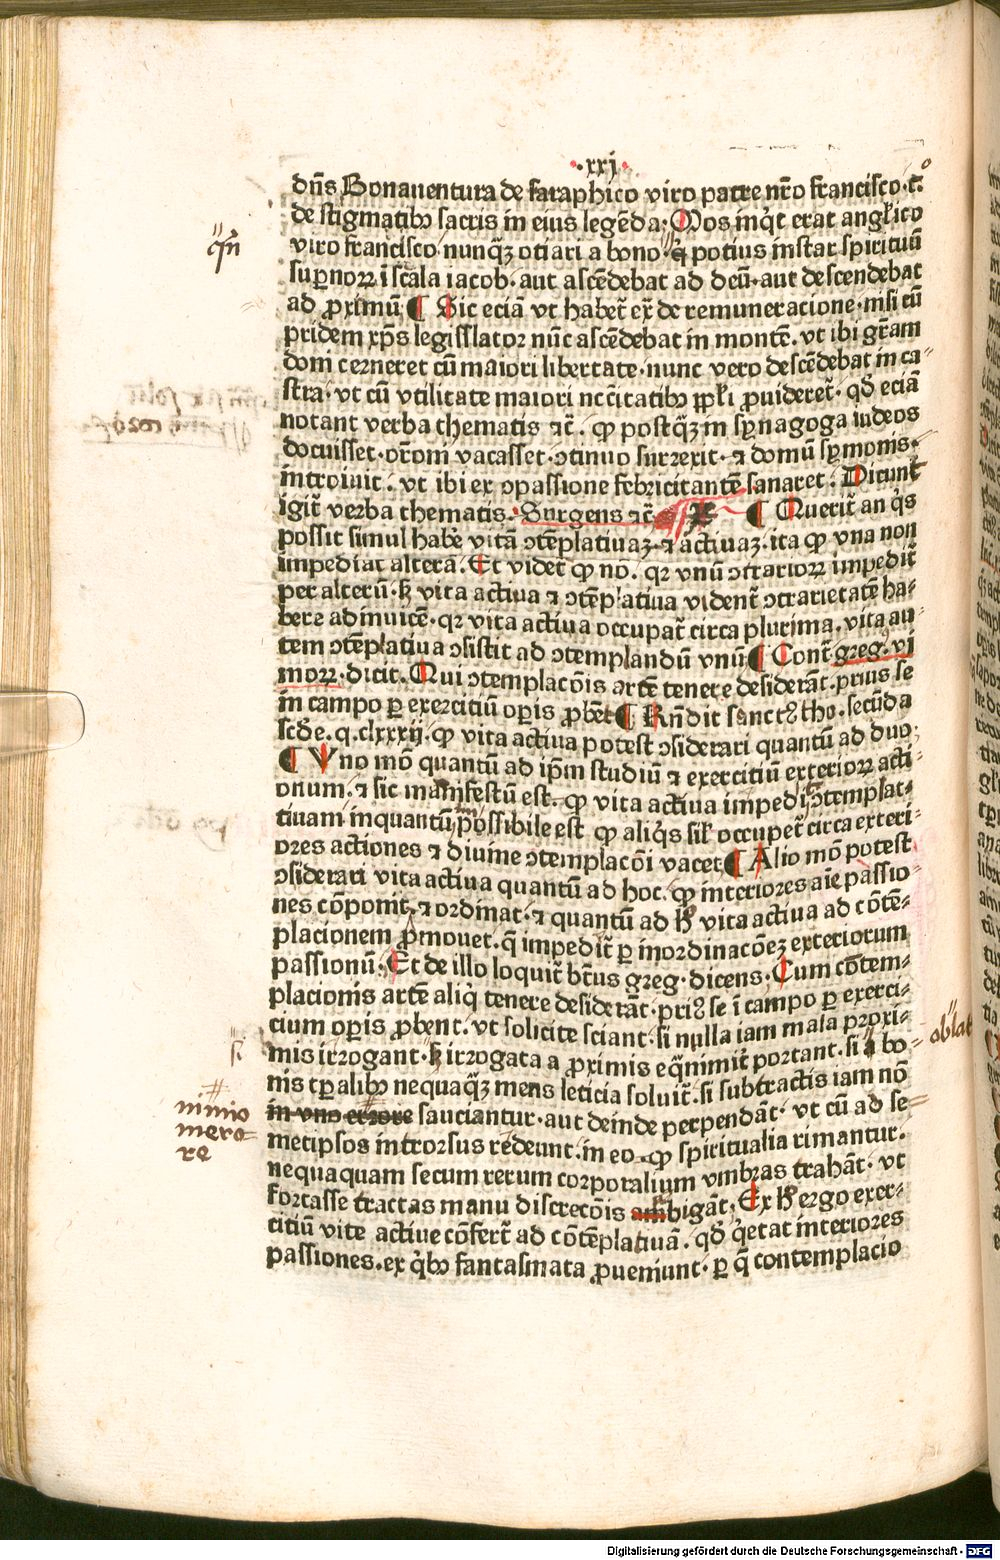 ·xxj·
dñs Bonauentura de saraphico viro patre nr̃o francisco·c̃.
de stigmatibꝰ sacris in eius legẽda· Mos inq̇t erat angl̕ico
viro francisco nunqꝫ otiari a bono·sꝫ potius instar spirituũ
suꝑnoꝝ ĩ scala iacob·aut ascẽdebat ad deũ·aut descendebat
ad ꝓximũ ¶ Sic eciã vt habet̃ ex̃ de remuneracione·nisi cũ
pridem xp̃s legisslator nũc ascẽdebat in montẽ.vt ibi gr̃am
dom̃i cerneret cũ maiori libertate·nunc vero descẽdebat in ca-
stra·vt cũ vtilitate maiori nec̃citatibꝰ ppl̕i ꝓuideret̃·qđ eciã
notant verba thematis ⁊c̃. ꝙ postqꝫ̃ in synagoga iudeos
docuisset·or̃oni vacasset·ↄtinuo surrexit·⁊ domũ symonis·
introiuit.vt ibi ex ↄpassione febricitantẽ sanaret. Dicunt̃
igit̃ verba thematis. Surgens ⁊c̃ ¶ Querit̃ an q̇s
possit simul habẽ vitã ↄtẽplatiuaꝫ·⁊ actiuaꝫ·ita ꝙ vna non
impediat alterã. Et videt̃ ꝙ no. qꝛ vnũ ↄtrarioꝝ impedit̃
per alterũ·sꝫ vita actiua ⁊ ↄtẽplatiua vident̃ ↄtrarietatẽ ha-
bere adinuicẽ·qꝛ vita actiua occupat̃ circa plurima.vita au-
tem ↄtẽplatiua ↄsistit ad ↄtemplandũ vnũ ¶ Cont̃ greg᷒.vj
moꝝ·dicit. Qui ↄtemplacõis artẽ tenere desiderãt·prius se
in campo ꝑ exercitiũ oꝑis ꝓbẽt ¶ Rñdit sanctꝰ tho·secũda
scđe.q.clxxxij.ꝙ vita actiua potest ↄsiderari quantũ ad duo
¶ Vno mõ quantũ ad ip̃m studiũ ⁊ exercitiũ exterioꝝ acti-
onum.⁊ sic manifestũ est.ꝙ vita actiua impedit ↄtemplat-
tiuam inquantũ impossibile est ꝙ aliq̇s sil̕ occupet̃ circa exteri-
ores actiones ⁊ diuine ↄtemplacõi vacet ¶ Alio mõ potest
ↄsiderari vita actiua quantũ ad hoc.ꝙ interiores aĩe passio-
nes cõponit.⁊ ordinat·⁊ quantũ ad hꝰ vita actiua ad cõtẽ-
placionem ꝓmouet.q̃ impedit̃ ꝑ inordinacõeꝫ exteriorum
passionũ. Et de illo loquit̃ bt̃us greg·dicens. Cum cõtem-
placionis artẽ aliq̇ tenere desiderãt·priꝰ se ĩ campo ꝑ exerci-
cium oꝑis ꝓbent.vt solicite sciant·si nulla iam mala proxi-
mis irrogant·sꝫ irrogata a ꝓximis eq̃nimit̃ portant.si a bo-
nis tꝑalibꝰ nequaqꝫ̃ mens leticia soluit̃.si subtractis iam nõ
in vno errore sauciantur·aut deinde perpendãt·vt cũ ad se-
metipsos introrsus redeunt·in eo·ꝙ spiritualia rimantur.
nequaquam secum rerum corporalium vmbras trahãt·vt
fortasse tractas manu discrecõis ambigãt. Ex hꝰ ergo exer-
citiũ vite actiue cõfert̃ ad cõtẽplatiuã.qđ q̇etat interiores
passiones.ex q̇bꝰ fantasmata ꝓueniunt·ꝑ q̃ contemplacio
oblat
si
nimio
mero-
re